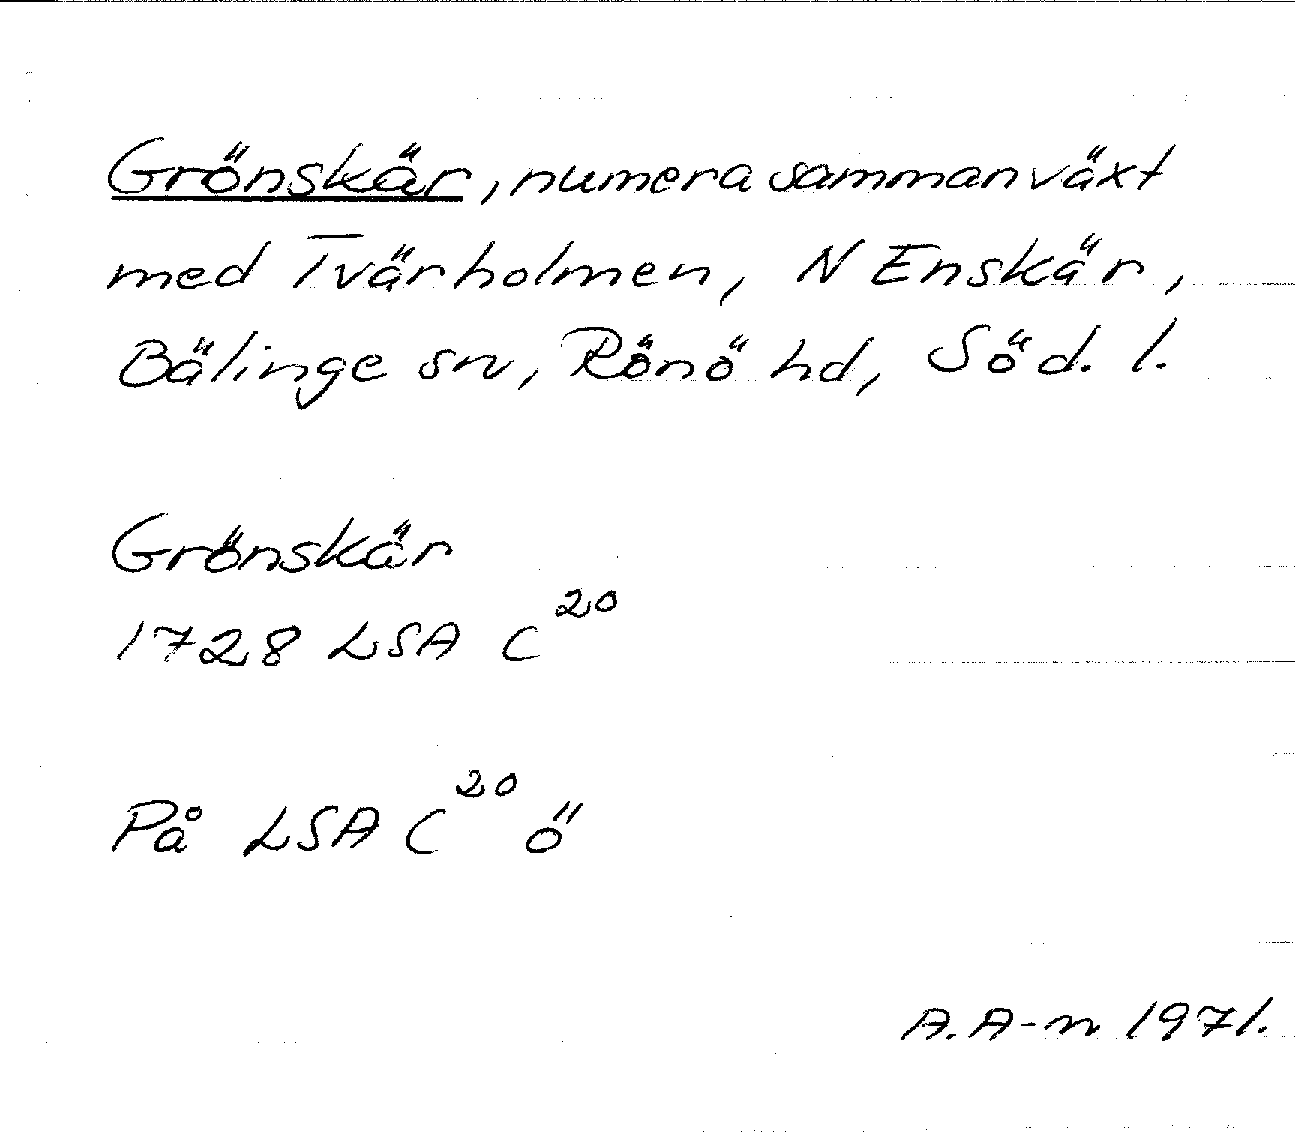 Grönskär, numera sammanväxt
med Tvärholmen, N Enskär,
Bälinge sn, Rönö hd, Söd. l.
Grönskär
1728 LSA C²⁰
På LSA C²⁰ ö
A. A-n 1971.